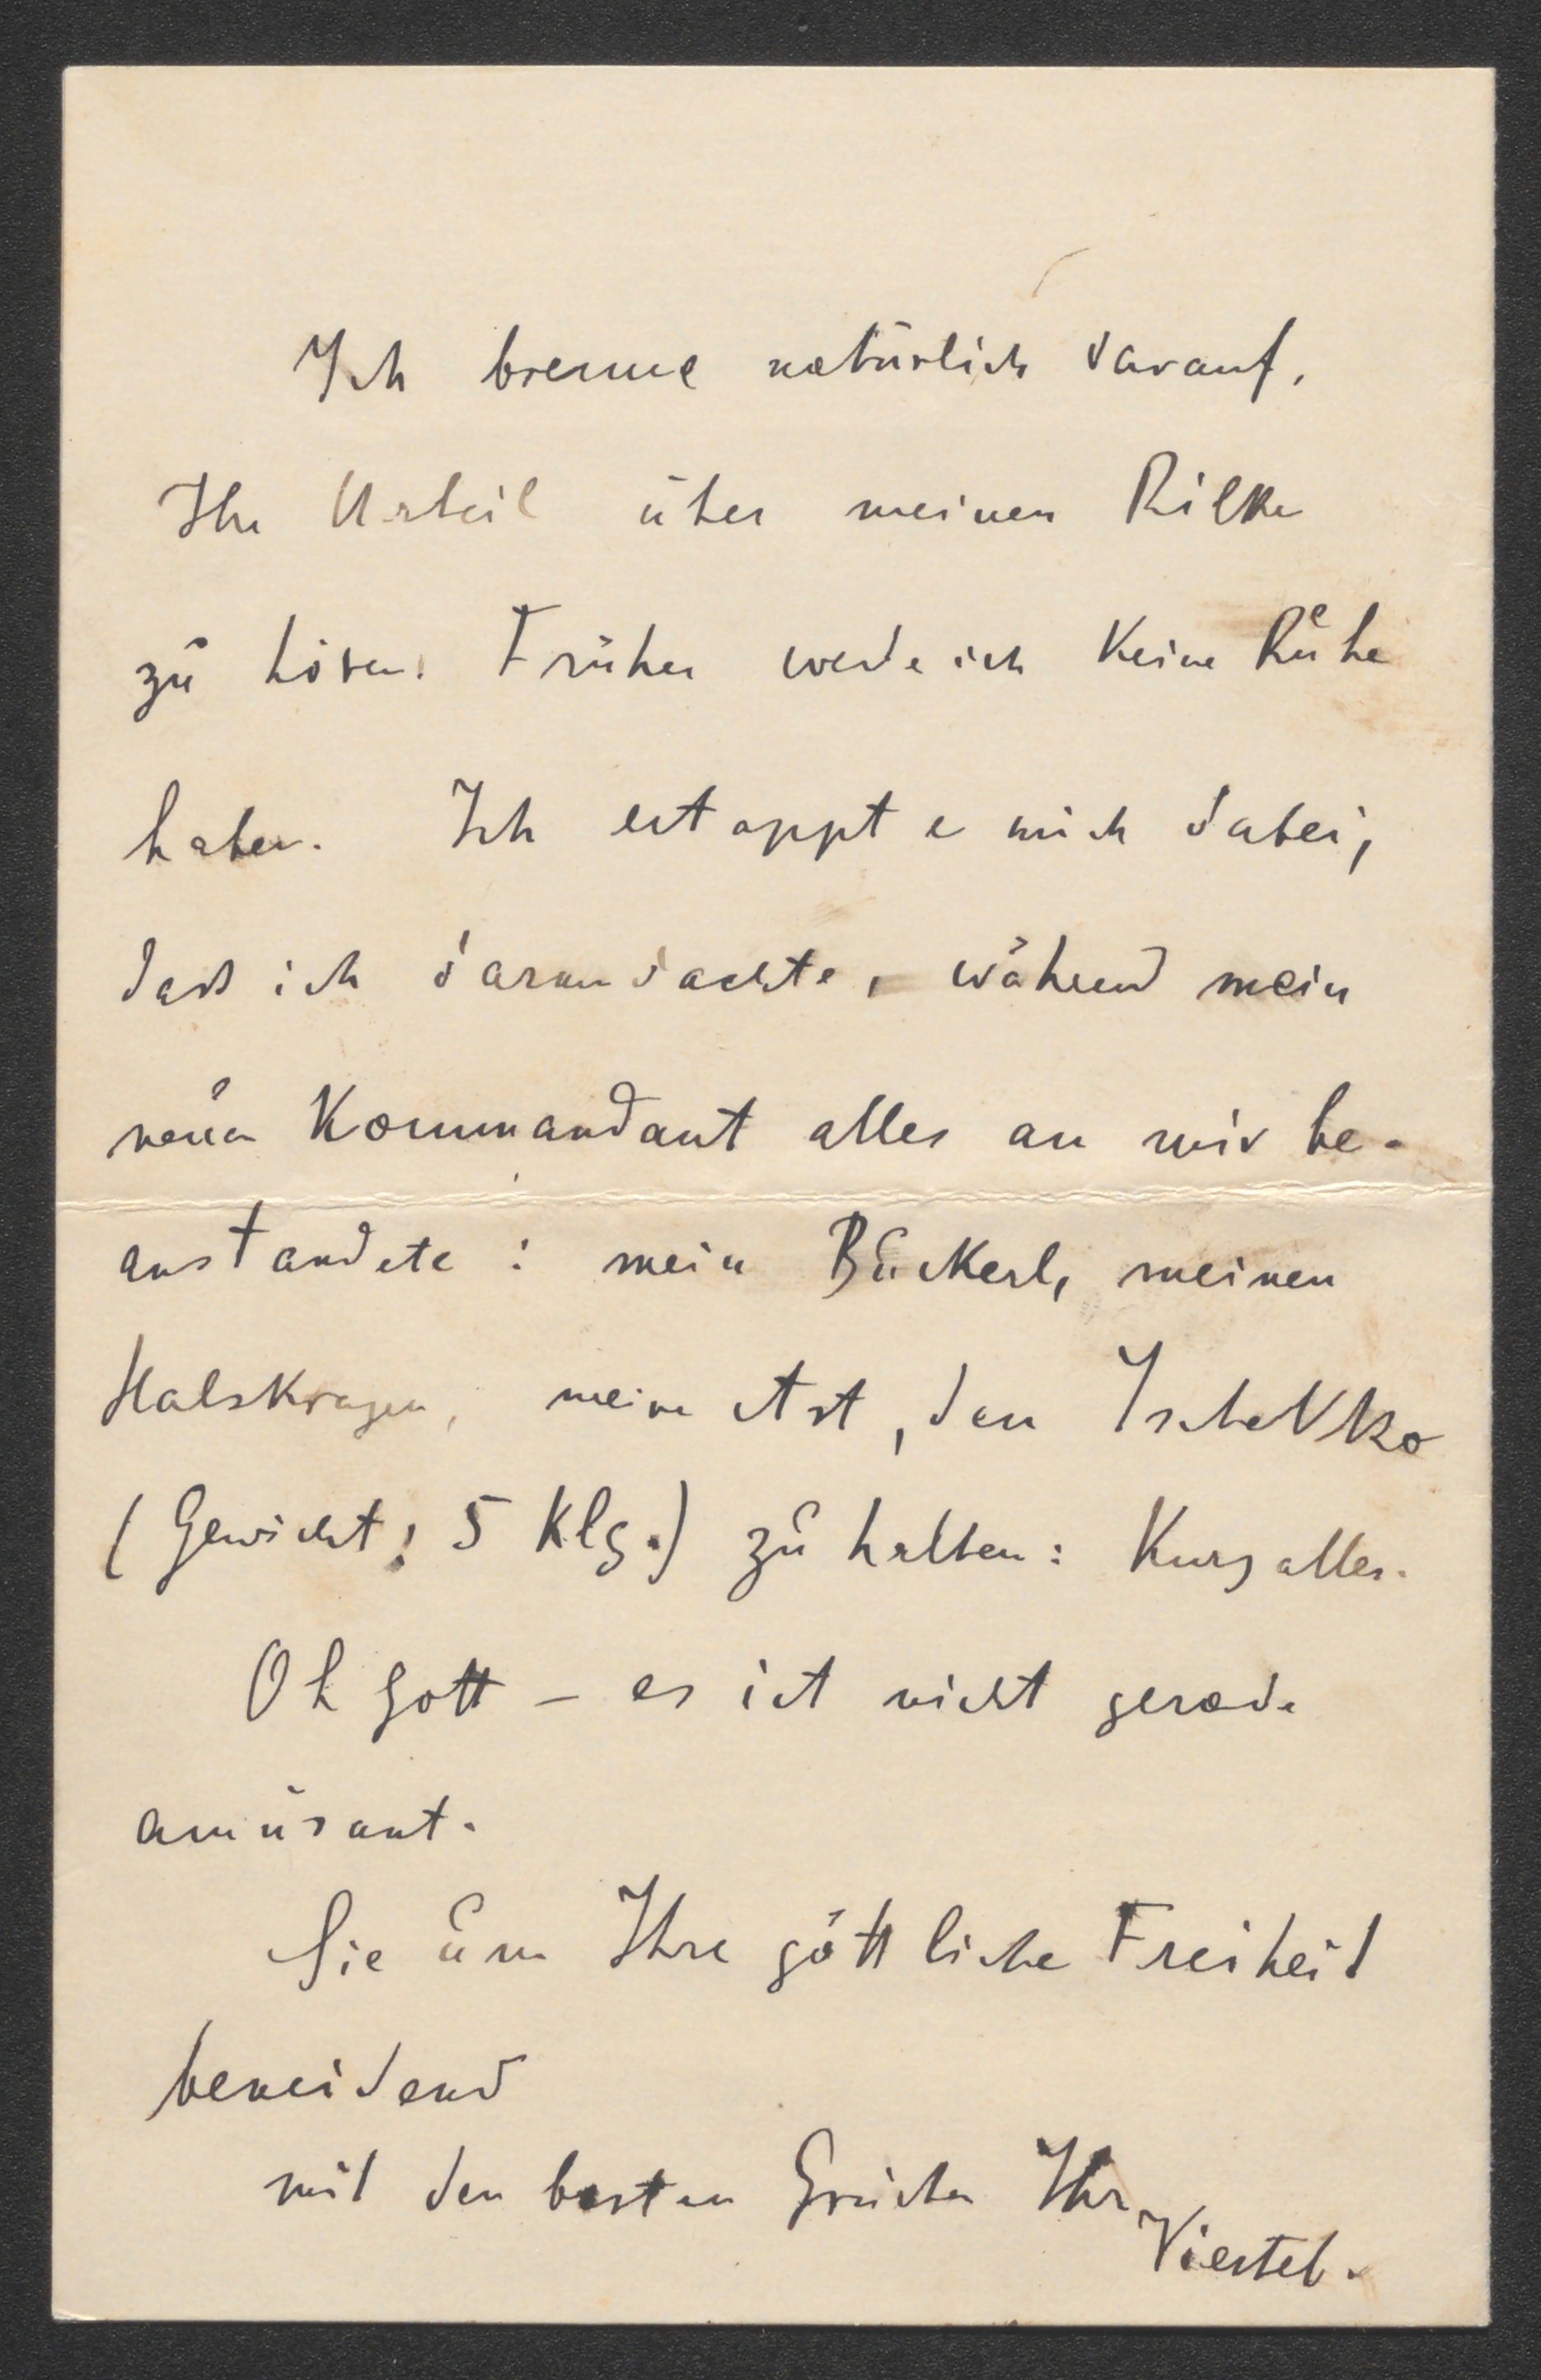 Ich brenne natürlich darauf,
Ihr Urteil über meinen Rilke
zu hören. Früher werde ich keine Ruhe
haben. Ich ertappte mich dabei,
dass ich daran dachte, während mein
neuer Kommandant alles an mir be-
anstandete: mein Buckerl, meinen
Halskragen, meine Art, den Tschakko
(Gewicht: 5 Klg.) zu halten: Kurz alles.
Oh Gott – es ist nicht gerade
amüsant.
Sie um Ihre göttliche Freiheit
beneidend
mit den besten Grüßen Ihr
Viertel.